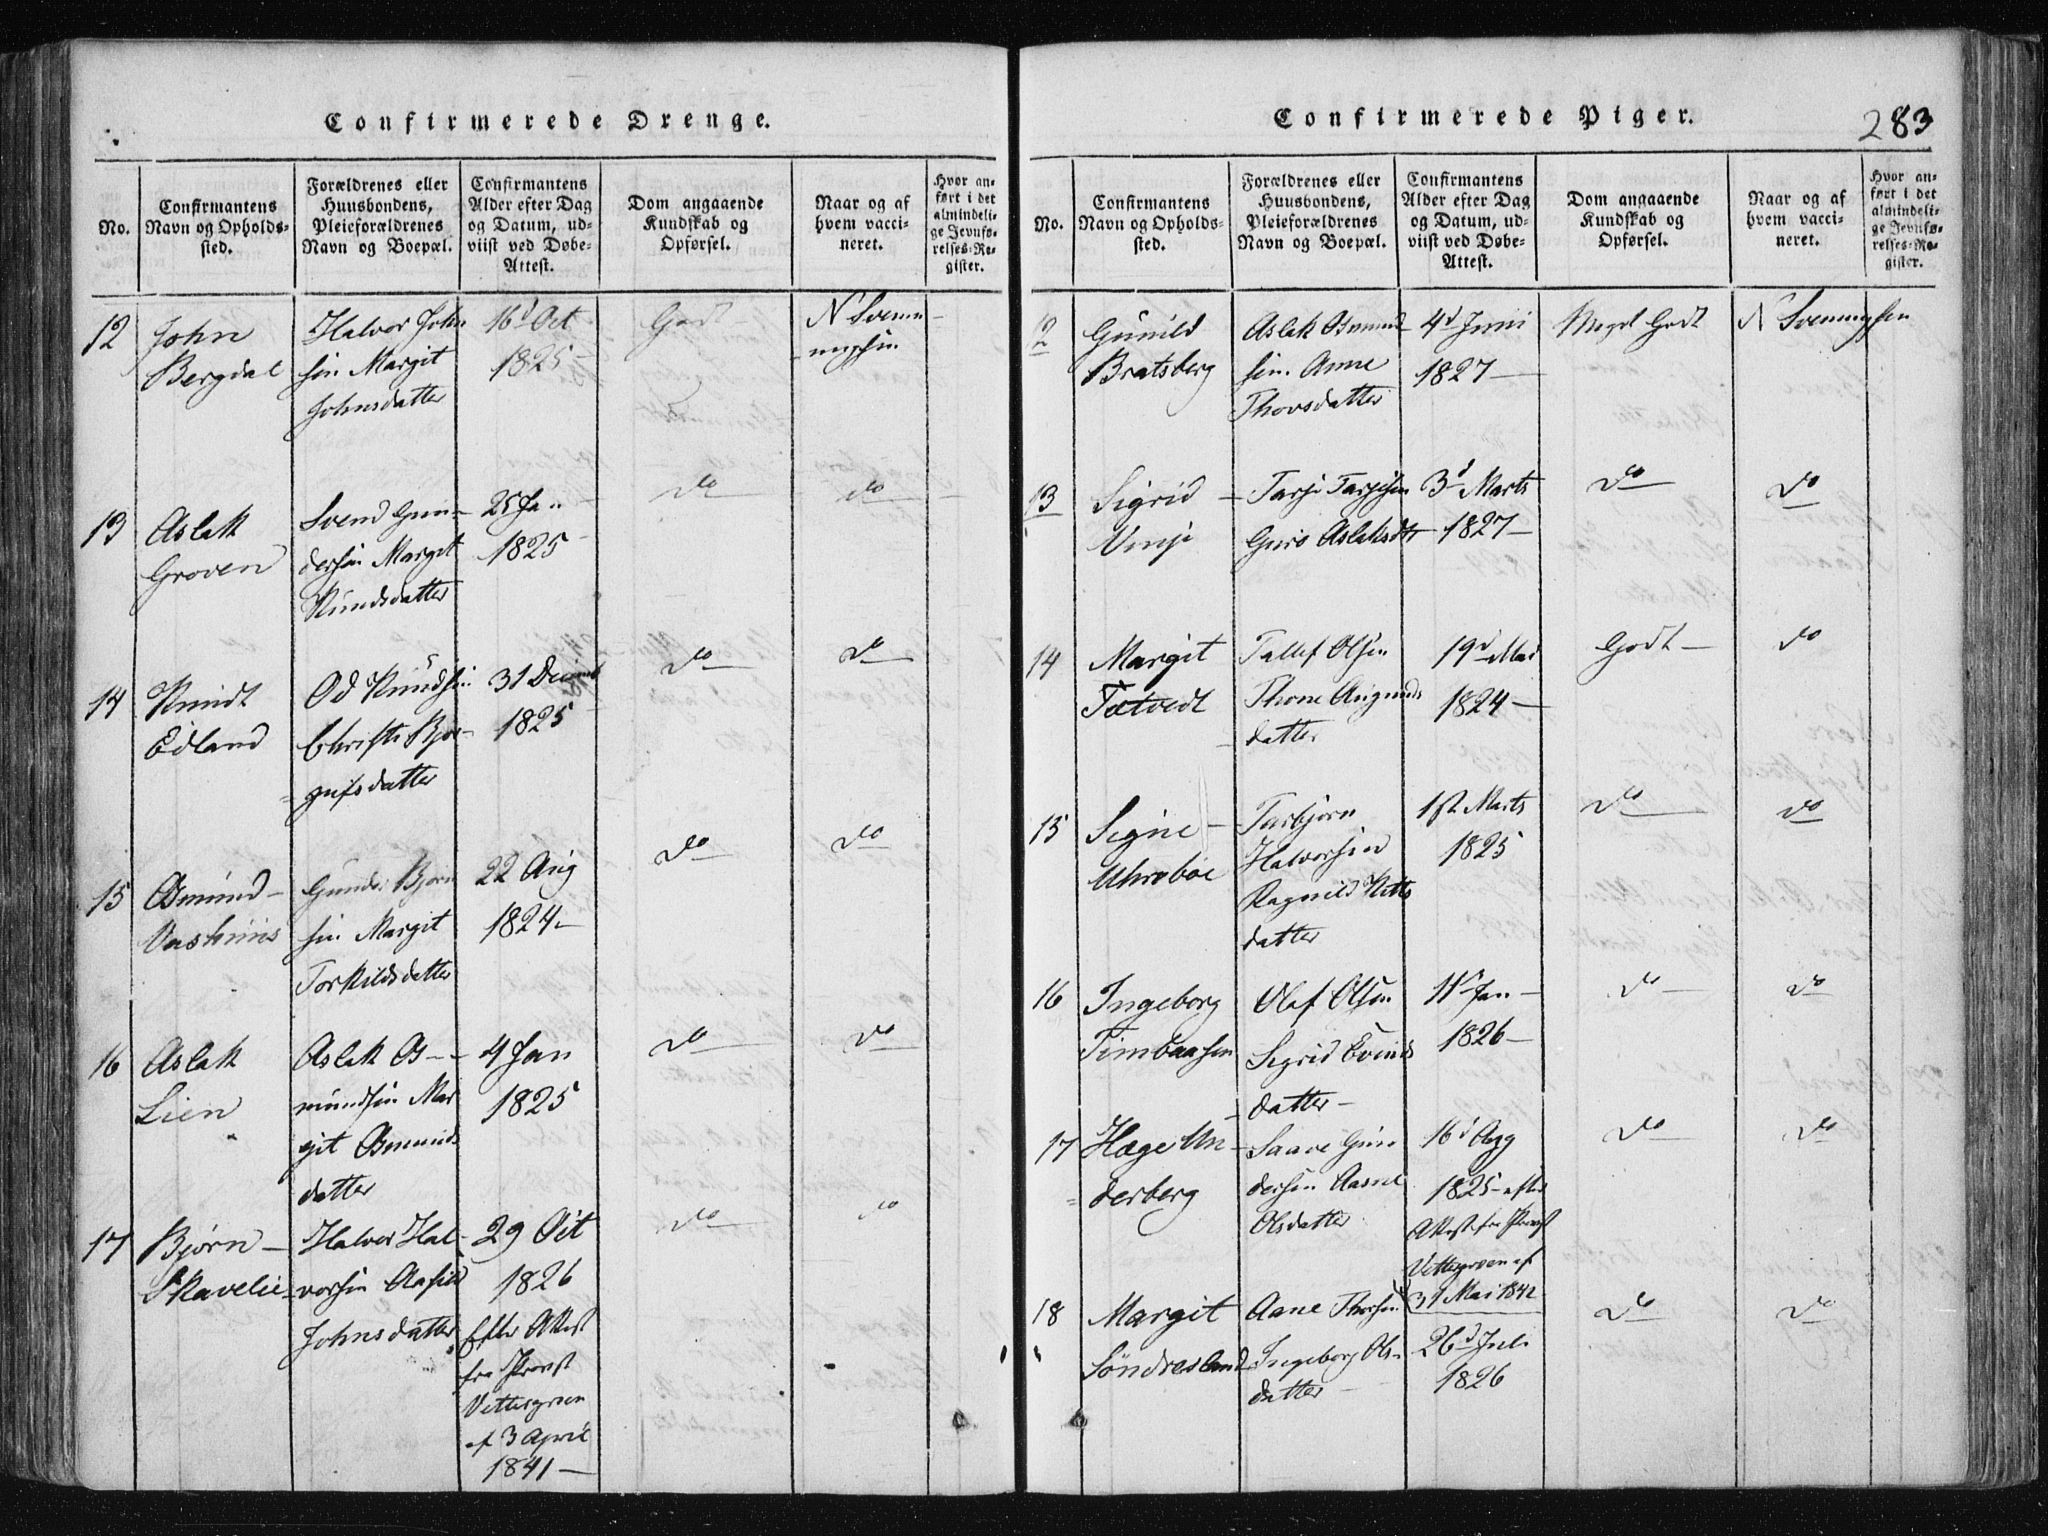 Confirmerede Drenge.
No.
Confirmantens
Navn og Opholds-
sted.
Forældrenes eller
Huusbondens,
Pleieforældrenes
Navn og Boepæl.
Confirmantens
Alder efter Dag
og Datum, ud-
viist ved Døbe-
Attest.
Dom angaaende
Kundskab og
Opførsel.
Naar og af
hvem vacci-
neret.
Hvor an-
ført i det
almindeli-
ge Jevnfø-
relses-Re-
gister.
12
John
Bergdal
Halvor John
sen Margit
Johnsdatter
16d Oct
1825 –
Godt
N Svenn
ingsen
13
Aslak
Groven
Svend Gun-
dersen Margit
Knudsdatter
25 Jan
1825 –
do
do
14
Knudt
Edland
Od Knudsen
Christi Bjor-
gufsdatter
31 Decemb
1825
do
do
15
Osmund –
Gunder Bjorn
sen Margit
Torkildsdatter
22 Aug
1824 –
do
do
16
Aslak
Lien
Aslak Os –
mundsen Mar
git Osmunds
datter
4 Jan
1825
do
do
17
Bjørn –
Skavelie –
Halvor Hal-
vorsen Aasild
Johnsdatter
29 Oct
1826
Efter Attest
fra Provst
Vettergreen
af 3 April
1841 –
do
do
Confirmerede Piger.
283
No.
Confirmantens
Navn og Opholds-
sted.
Forældrenes eller
Huusbondens,
Pleieforældrenes
Navn og Boepæl.
Confirmantens
Alder efter Dag
og Datum, ud-
viist ved Døbe-
Attest.
Dom angaaende
Kundskab og
Opførsel.
Naar og af
hvem vacci-
neret.
Hvor an-
ført i det
almindeli-
ge Jevnfø-
relses-Re-
gister.
12
Gunild
Bratsberg
Aslak Osmund
sen. Anne
Thovsdatter
4d Juni
1827 –
Meget Godt
N Svenningsen
13
Sigrid –
Vinje
Tarje Tarjesen
Guro Aslaksdtr
3d Marts
1827 –
do
do
14
Margit
Tatvedt
Tallef Olsen
Thone Augunds
datter
19d Mai
1824 –
Godt –
do
15
Signe –
Uhroboe
Tarbjørn
Halvorsen
Ragnild Ketts
datter
1st Marts
1825
do
do
16
Ingeborg
Timbaasen
Olaf Olsen
Sigrid Evinds
datter –
11d Jan –
1826 –
do
do
17
Hæge Un –
derberg
Saave Gun
dersen Aasne
Olsdatter
16d Agg
1825 – efter
Attest fra Provst
Vettergreen af
31 Mai 1842
do
do
18
Margit
Søndresland
Aane Thorsen
Ingeborg Ols-
datter –
26d Juli
1826
do
do